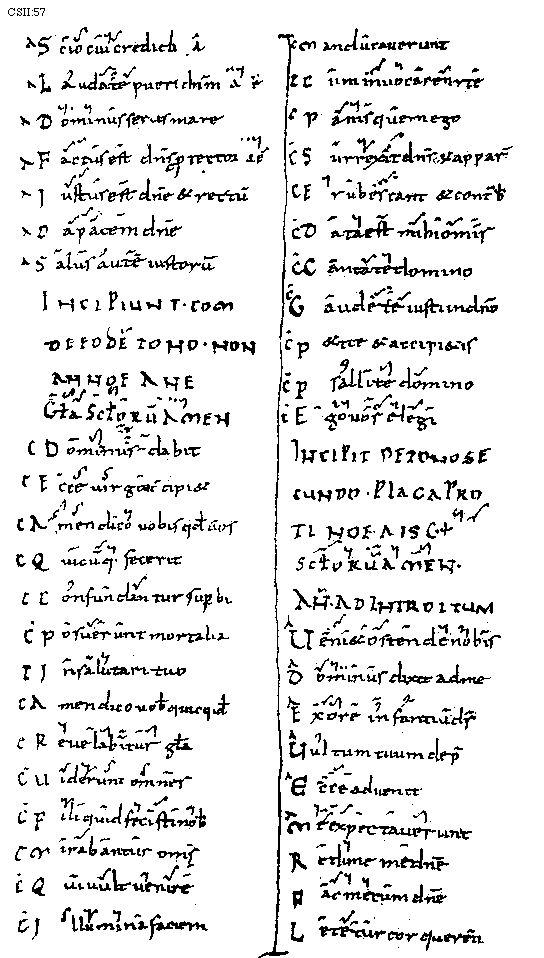 CSII:57
A S cio cui credidi A
A L audate pueri dnm A E
A D ominus servus mare
A F actus est dns protector AE
A I ustus est dne & rectū
A D a pacem dne
A S alus autē iustorū
INCIPIUNT. COM
DE EODĒ TONO. NON
ANNOE ANE
Gła Sctorū AMEN
C D ominus dabit
C E cce virgo concipi&
C A men dico vobis qđ
C Q uicūq fecerit
C C onfundantur supbi
C P osuerunt mortalia
C I n salutari tuo
C A men dico vob quicqđ
C R evelabitur gła
C U iderunt omnes
C F ili quid fecisti nob
C M irabantur omis
C Q ui vult venire
C I llumina faciem
C M anducaverunt
C C um invocarem te
C P anis quem ego
C S urrexit dns & appar
C E rubescant & cont
C D ata est mihi omis
C C antate domino
C G audete iusti in dno
C P &ite & accipi&is
C P sallite domino
C E go vos elegi
INCIPIT DE TONO SE
CUNDO. PLAGA PRO
TI NOEAIS Gł
SCTORŪ AMEN.
AN. AD INTROITUM
A U eni & ostende nobis
A D ominus dixit ad me
A E x ore infantiū ds
A U ultum tuum dep
A E cce advenit
A M e expectaverunt
R edime me dne
F ac mecum dne
L etetur cor querenti